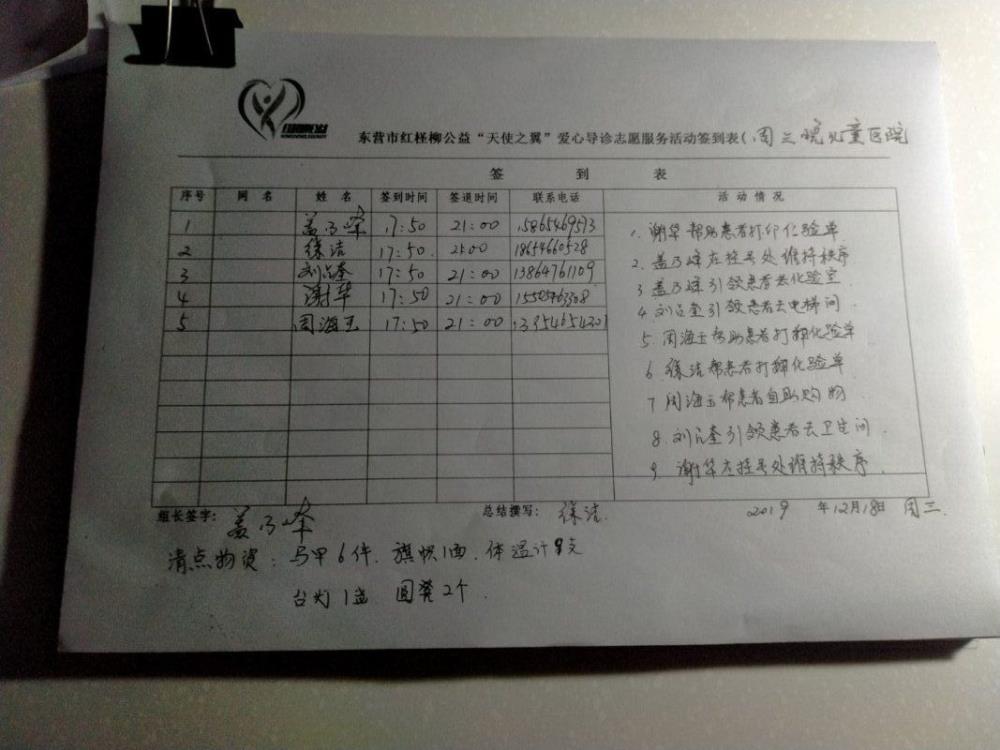 东营市红柽柳公益“天使之翼”爱心导诊志愿服务活动签到表(周三晚儿童医院
签 到 表
序号 网 名 姓 名 签到时间 签退时间 联系电话 活动情况
1 盖乃峰 17:50 21:00 15865469573
2 徐洁 17:50 21:00 18654660528
3 刘占奎 17:50 21:00 13864761109
4 谢华 17:50 21:00
5 周海玉 17:50 21:00 13354654301
1. 谢华帮助患者打印化验单
2. 盖乃峰在挂号处维持秩序
3 盖乃峰引领患者去化验室
4. 刘占奎引领患者去电梯间
5. 周海玉帮助患者打印化验单
6. 徐洁帮患者打印化验单
7 周海玉帮患者自助购物
8. 刘占奎引领患者去卫生间
9. 谢华在挂号处维持秩序
组长签字: 盖乃峰 总结撰写: 徐洁 2019 年12月18日 周三
清点物资: 马甲6件. 旗帜1面. 体温计9支
台灯1盏 圆凳2个.